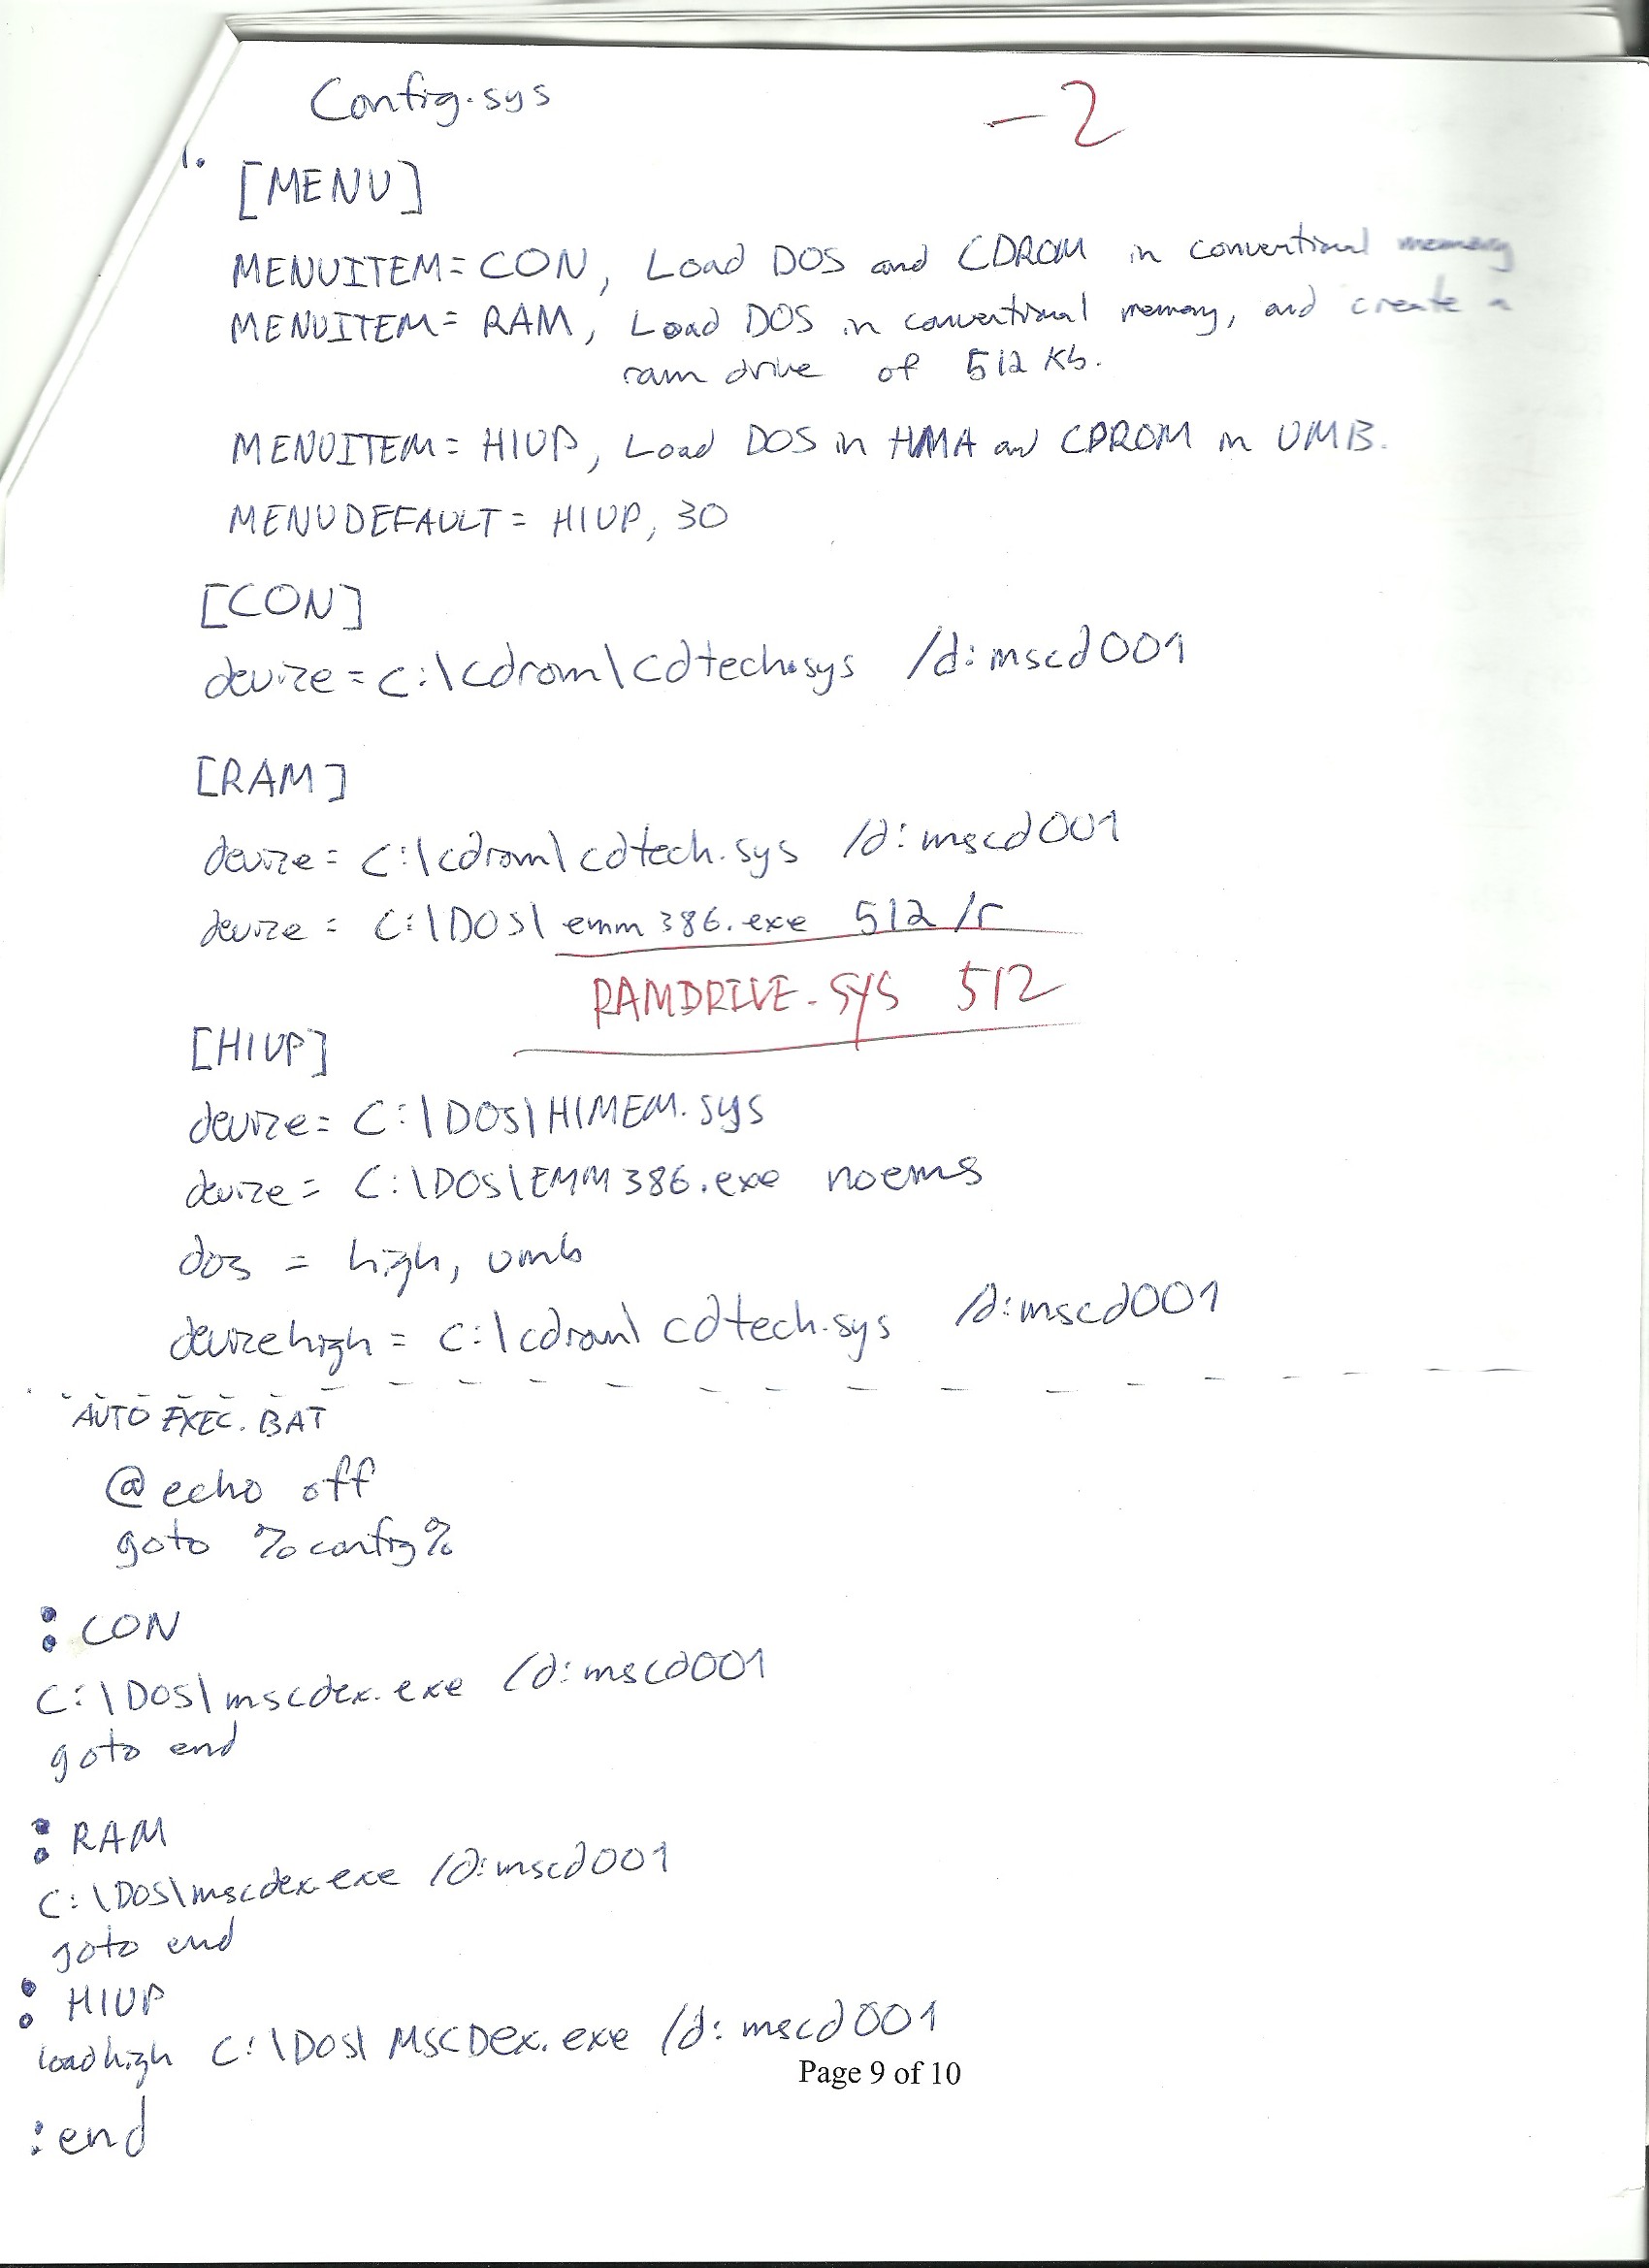 Config.sys
-2
1. [MENU]
MENUITEM=CON, Load DOS and CDROM in conventional memory
MENUITEM= RAM, Load DOS in conventional memory, and create a
ram drive of 512 Kb.
MENUITEM= HIUP, Load DOS in HMA and CDROM in UMB.
MENUDEFAULT= HIUP, 30
[CON]
device=c:\cdrom\cdtech.sys /d:mscd001
[RAM]
device= c:\cdrom\cdtech.sys /d:mscd001
device= C:\DOS\emm386.exe 512 /r
RAMDRIVE.SYS 512
[HIUP]
device= C:\DOS\HIMEM.sys
device= C:\DOS\EMM386.exe noems
dos = high, umb
devicehigh= c:\cdrom\cdtech.sys /d:mscd001
AUTOEXEC.BAT
@echo off
goto %config%
:CON
C:\DOS\mscdex.exe /d:mscd001
goto end
:RAM
C:\DOS\mscdex.exe /d:mscd001
goto end
:HIUP
loadhigh C:\DOS\MSCDex.exe /d:mscd001
Page 9 of 10
:end